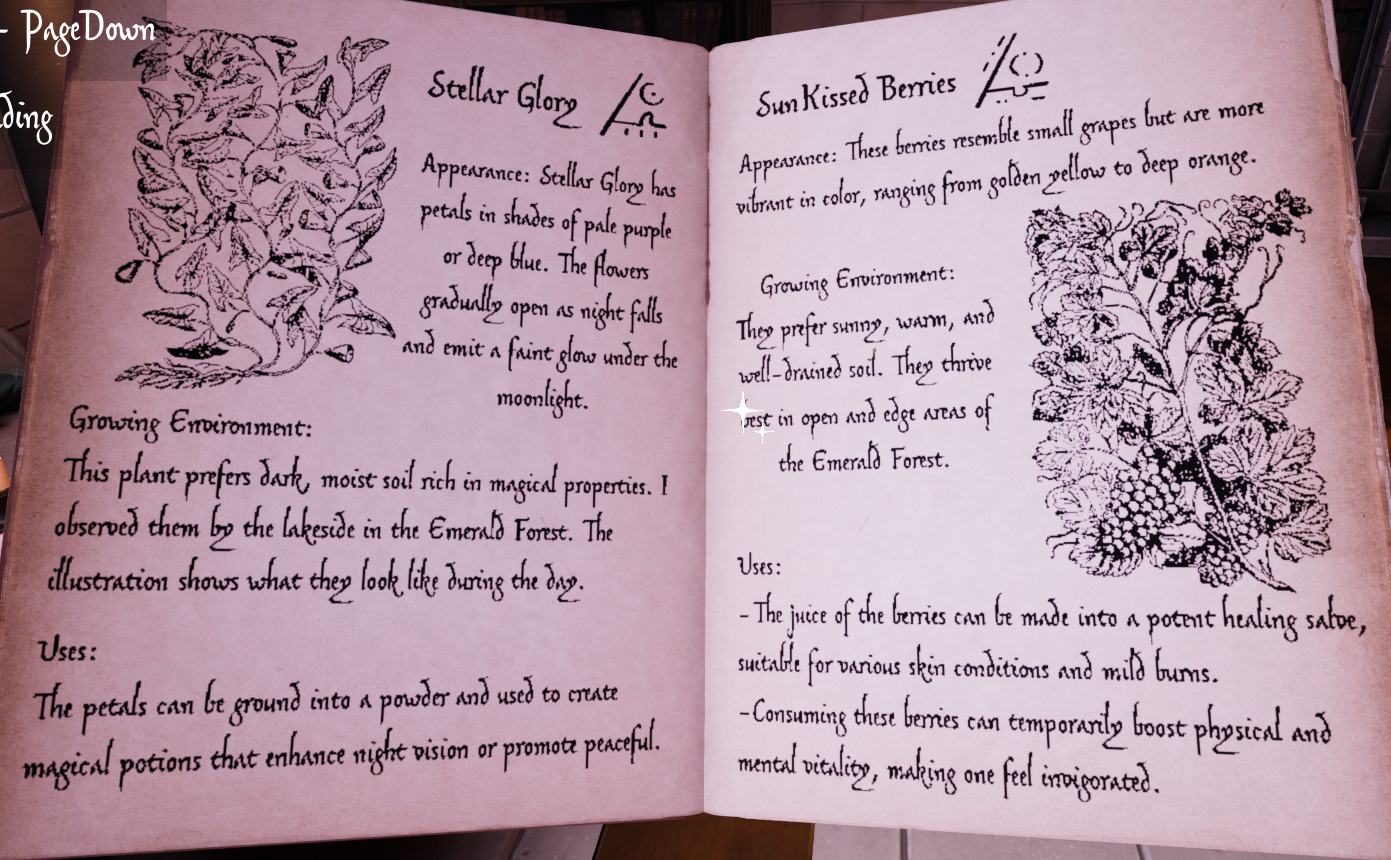 - PageDown
ding
Stellar Glory
Appearance: Stellar Glory has
petals in shades of pale purple
or deep blue. The flowers
gradually open as night falls
and emit a faint glow under the
moonlight.
Growing Environment:
This plant prefers dark, moist soil rich in magical properties. I
observed them by the lakeside in the Emerald Forest. The
illustration shows what they look like during the day.
Uses:
The petals can be ground into a powder and used to create
magical potions that enhance night vision or promote peaceful.
SunKissed Berries
Appearance: These berries resemble small grapes but are more
vibrant in color, ranging from golden yellow to deep orange.
Growing Environment:
They prefer sunny, warm, and
well-drained soil. They thrive
best in open and edge areas of
the Emerald Forest.
Uses:
-The juice of the berries can be made into a potent healing salve,
suitable for various skin conditions and mild burns.
-Consuming these berries can temporarily boost physical and
mental vitality, making one feel invigorated.